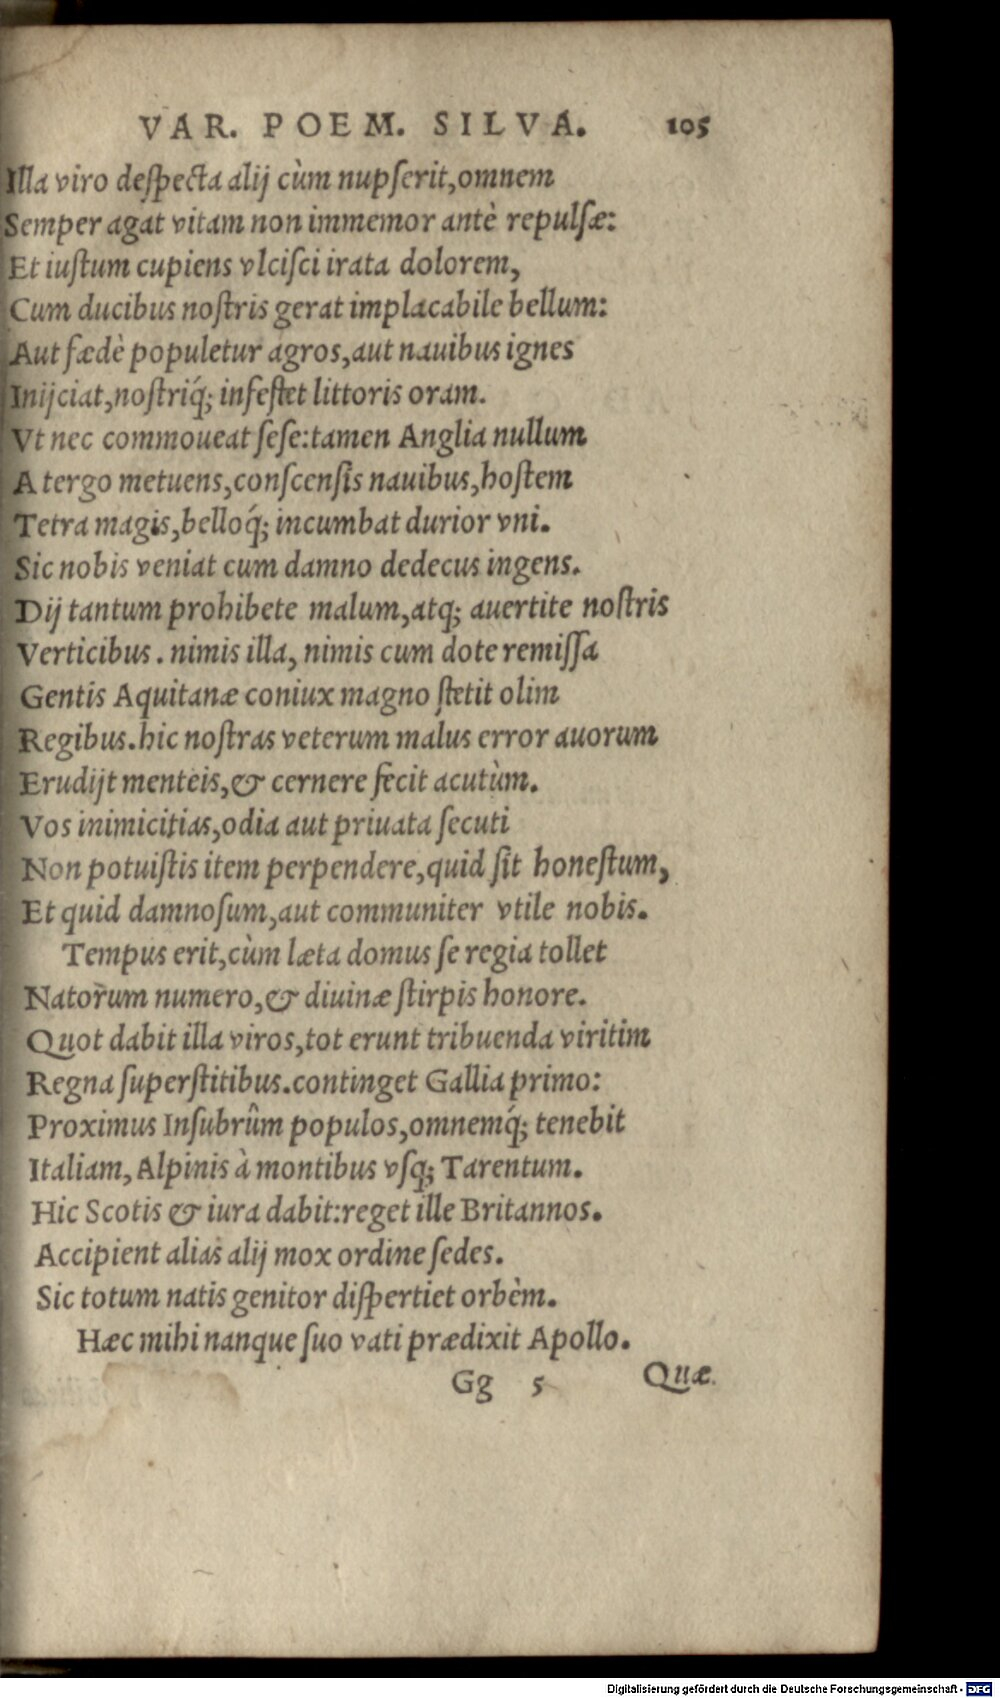 VAR. POEM. SILVA. 105
Illa viro despecta alij cùm nupserit, omnem
Semper agat vitam non immemor antè repulsæ:
Et iustum cupiens vlcisci irata dolorem,
Cum ducibus nostris gerat implacabile bellum:
Aut fœdè populetur agros, aut nauibus ignes
Inijciat, nostriq́; infestet littoris oram.
Vt nec commoueat sese: tamen Anglia nullum
A tergo metuens, conscensis nauibus, hostem
Tetra magis, belloq́; incumbat durior vni.
Sic nobis veniat cum damno dedecus ingens.
Dij tantum prohibete malum, atq; auertite nostris
Verticibus. nimis illa, nimis cum dote remissa
Gentis Aquitanæ coniux magno stetit olim
Regibus. hic nostras veterum malus error auorum
Erudijt menteis, & cernere fecit acutùm.
Vos inimicitias, odia aut priuata secuti
Non potuistis item perpendere, quid sit honestum,
Et quid damnosum, aut communiter vtile nobis.
Tempus erit, cùm læta domus se regia tollet
Natorum numero, & diuinæ stirpis honore.
Quot dabit illa viros, tot erunt tribuenda viritim
Regna superstitibus. continget Gallia primo:
Proximus Insubrûm populos, omnemq́; tenebit
Italiam, Alpinis à montibus vsq; Tarentum.
Hic Scotis & iura dabit: reget ille Britannos.
Accipient alias alij mox ordine sedes.
Sic totum natis genitor dispertiet orbèm.
Hæc mihi nanque suo vati prædixit Apollo.
Gg 5 Quæ
Digitalisierung gefördert durch die Deutsche Forschungsgemeinschaft - DFG